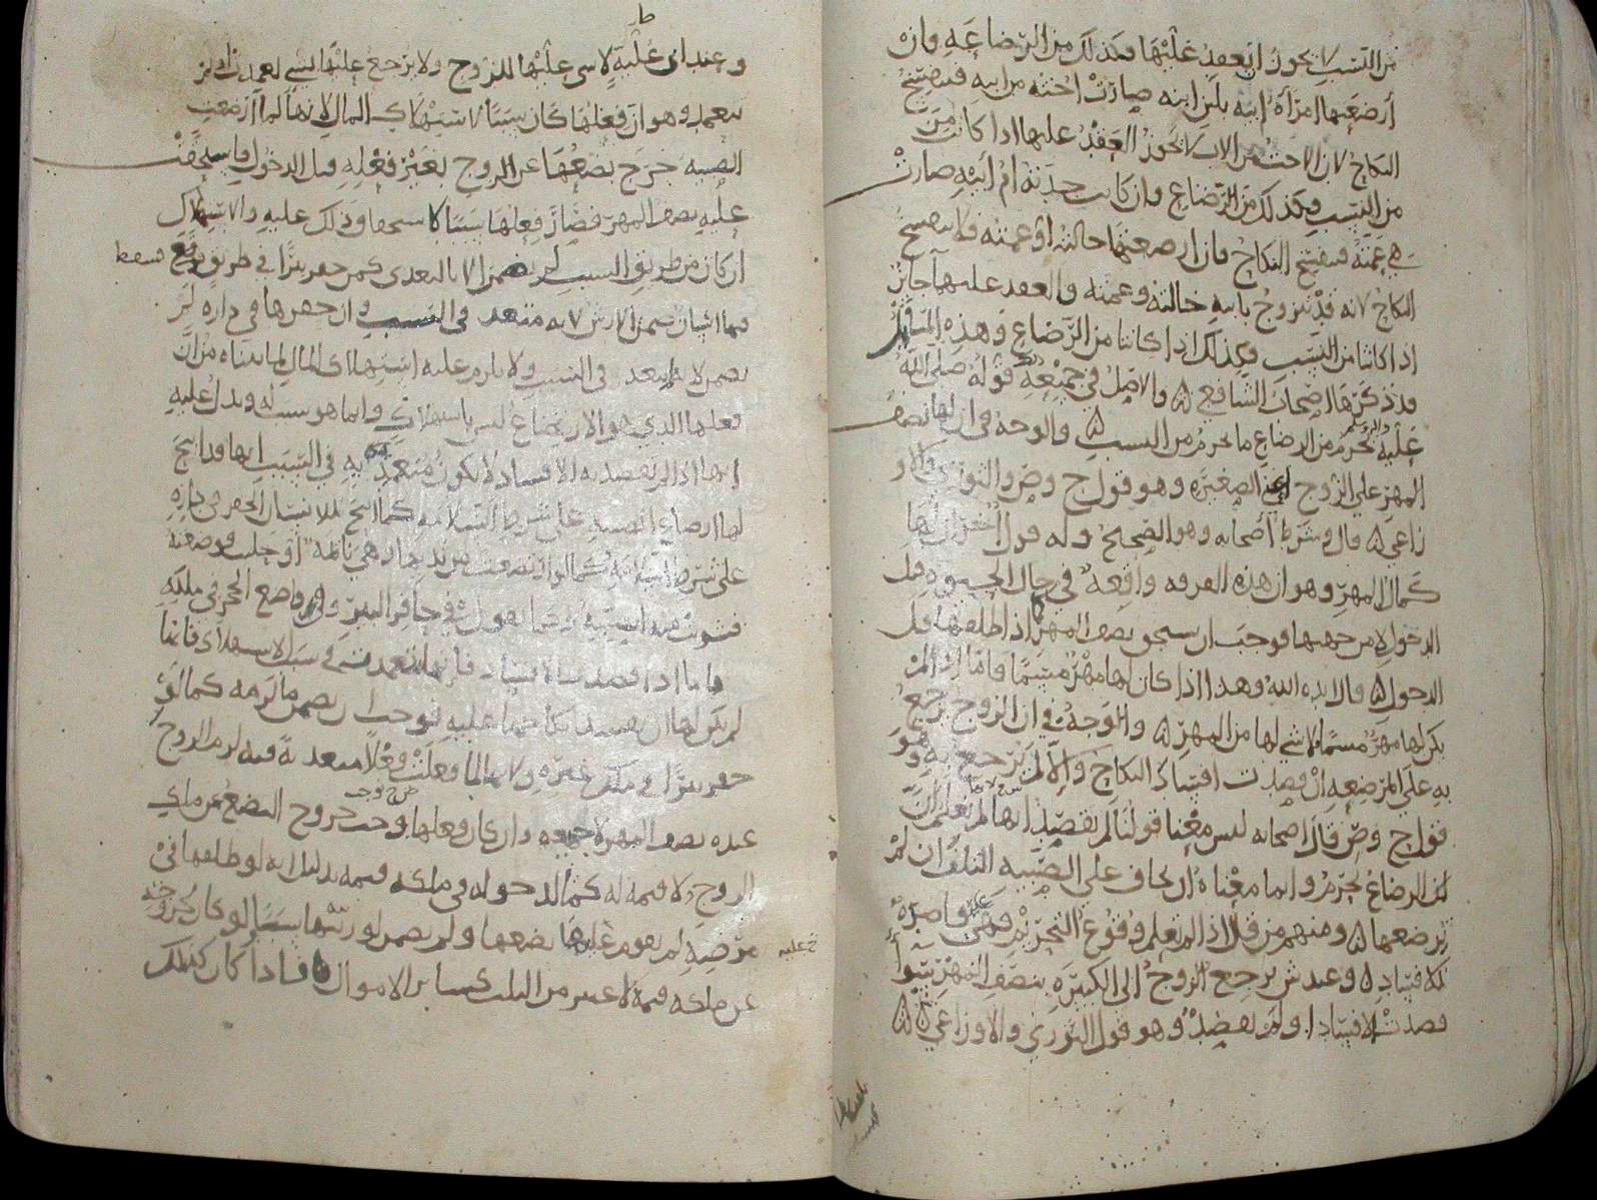 من النسب لا يجوز ان يعقد عليها فكذلك من الرضاعة وان
أرضعتها امرأة ابنه بلبن ابنه صارت اخته من ابيه فينفسخ
النكاح لان الاخت من الاب لا يجوز العقد عليها اذا كانت من
من النسب فكذلك من الرضاع وان كانت جدته ام ابيه صارت
هي عمته فينفسخ النكاح فان ارضعتها خالته او عمته فلا ينفسخ
النكاح لانه قد تزوج بابنه خالته وعمته والعقد عليهما جائز
اذا كانتا من النسب فكذلك اذا كانتا من الرضاع وهذه المسائل
قد ذكرها اصحاب الشافعي والاصل في جميعه قوله صلى الله
عليه يحرم من الرضاع ما يحرم من النسب والوجه في ان لها نصف
المهر على الزوج اعني الصغيرة وهو قول ح وص والثوري والاو
زاعي قال وشرط أصحابه وهو الصحيح وله قول اخر ان لها
كمال المهر وهو ان هذه الفرقه واقعة في حال الحيوه قبل
الدخول لا من جهتها فوجب ان تستحق نصف المهر كما اذا طلقها قبل
الدخول قال ايده الله وهذا اذا كان لها مهر مسمى فاما اذا لم
يكن لها مهر مسمى فلا شي لها من المهر والوجه في ان الزوج يرجع
به على المرضعه ان قصدت افساد النكاح والا لم يرجع به وهو
قول ح وص قال اصحابه ليس معنا قولنا لم تقصد انها لم تعلم ان
لان الرضاع يحرم وانما معناه ان يخاف على الصبيه التلف ان لم
ترضعها ومنهم من قال اذا لم تعلم وقوع التحريم فهي غير قاصدة
للافساد وعند ش يرجع الزوج الى الكبيرة بنصف المهر سوآ
قصدت الافساد او لم تقصد وهو قول الثوري والاوزاعي
وعند ابي علية لا شي عليها للزوج ولا يرجع عليها بشي تعمدت او لم
تتعمد وهو ان فعلها كان سببا لاستهلاك المال لانها لما ارضعت
الصبيه خرج بضعها عن الزوج بغير فعله قبل الدخول فاستحقت
عليه نصف المهر فصار فعلها سببا لاستحقاق ذلك عليه والاستهلاك
ان كان من طريق السبب لم يضمن الا بالتعدي كمن حفر بئرا في طريق فوقع
فيها انسان ضمن الارش لانه متعد في السبب وان حفرها في داره لم
يضمن لانه لم يتعد في السبب ولا يلزم عليه استهلاك المال لما بيناه من ان
فعلها الذي هو الارضاع ليس باستهلاك وانما هو سبب له ويدل عليه
انها اذا لم تقصد به الافساد لا يكون متعديه في السبب انها قد ابيح
لها ارضاع الصبيه على شرط السلامه كما ابيح للانسان الحفر في داره
على شرط السلامه
فاما اذا قصدت الافساد فانها تعمدت في سبب الاستهلاك فانما
لم يكن لها ان تفسد نكاحها عليه فوجب ان تضمن ما لزمه كما لو
حفر بئرا في ملك غيره ولانها لما فعلت فعلا متعديه فيه لزم الزوج
عنده نصف المهر لا جميعه وان كان فعلها يوجب خروج البضع عن ملك
الزوج ولا قيمة له كما لدخوله في ملكه قيمه بدليل انه لو طلقها في
مرضه لم يقوم عليه بضعها ولم يضمن لورثتها شيئا ولو كان لخروجه
عن ملكه قيمة لاعتبر من الثلث كسائر الاموال فاذا كان كذلك